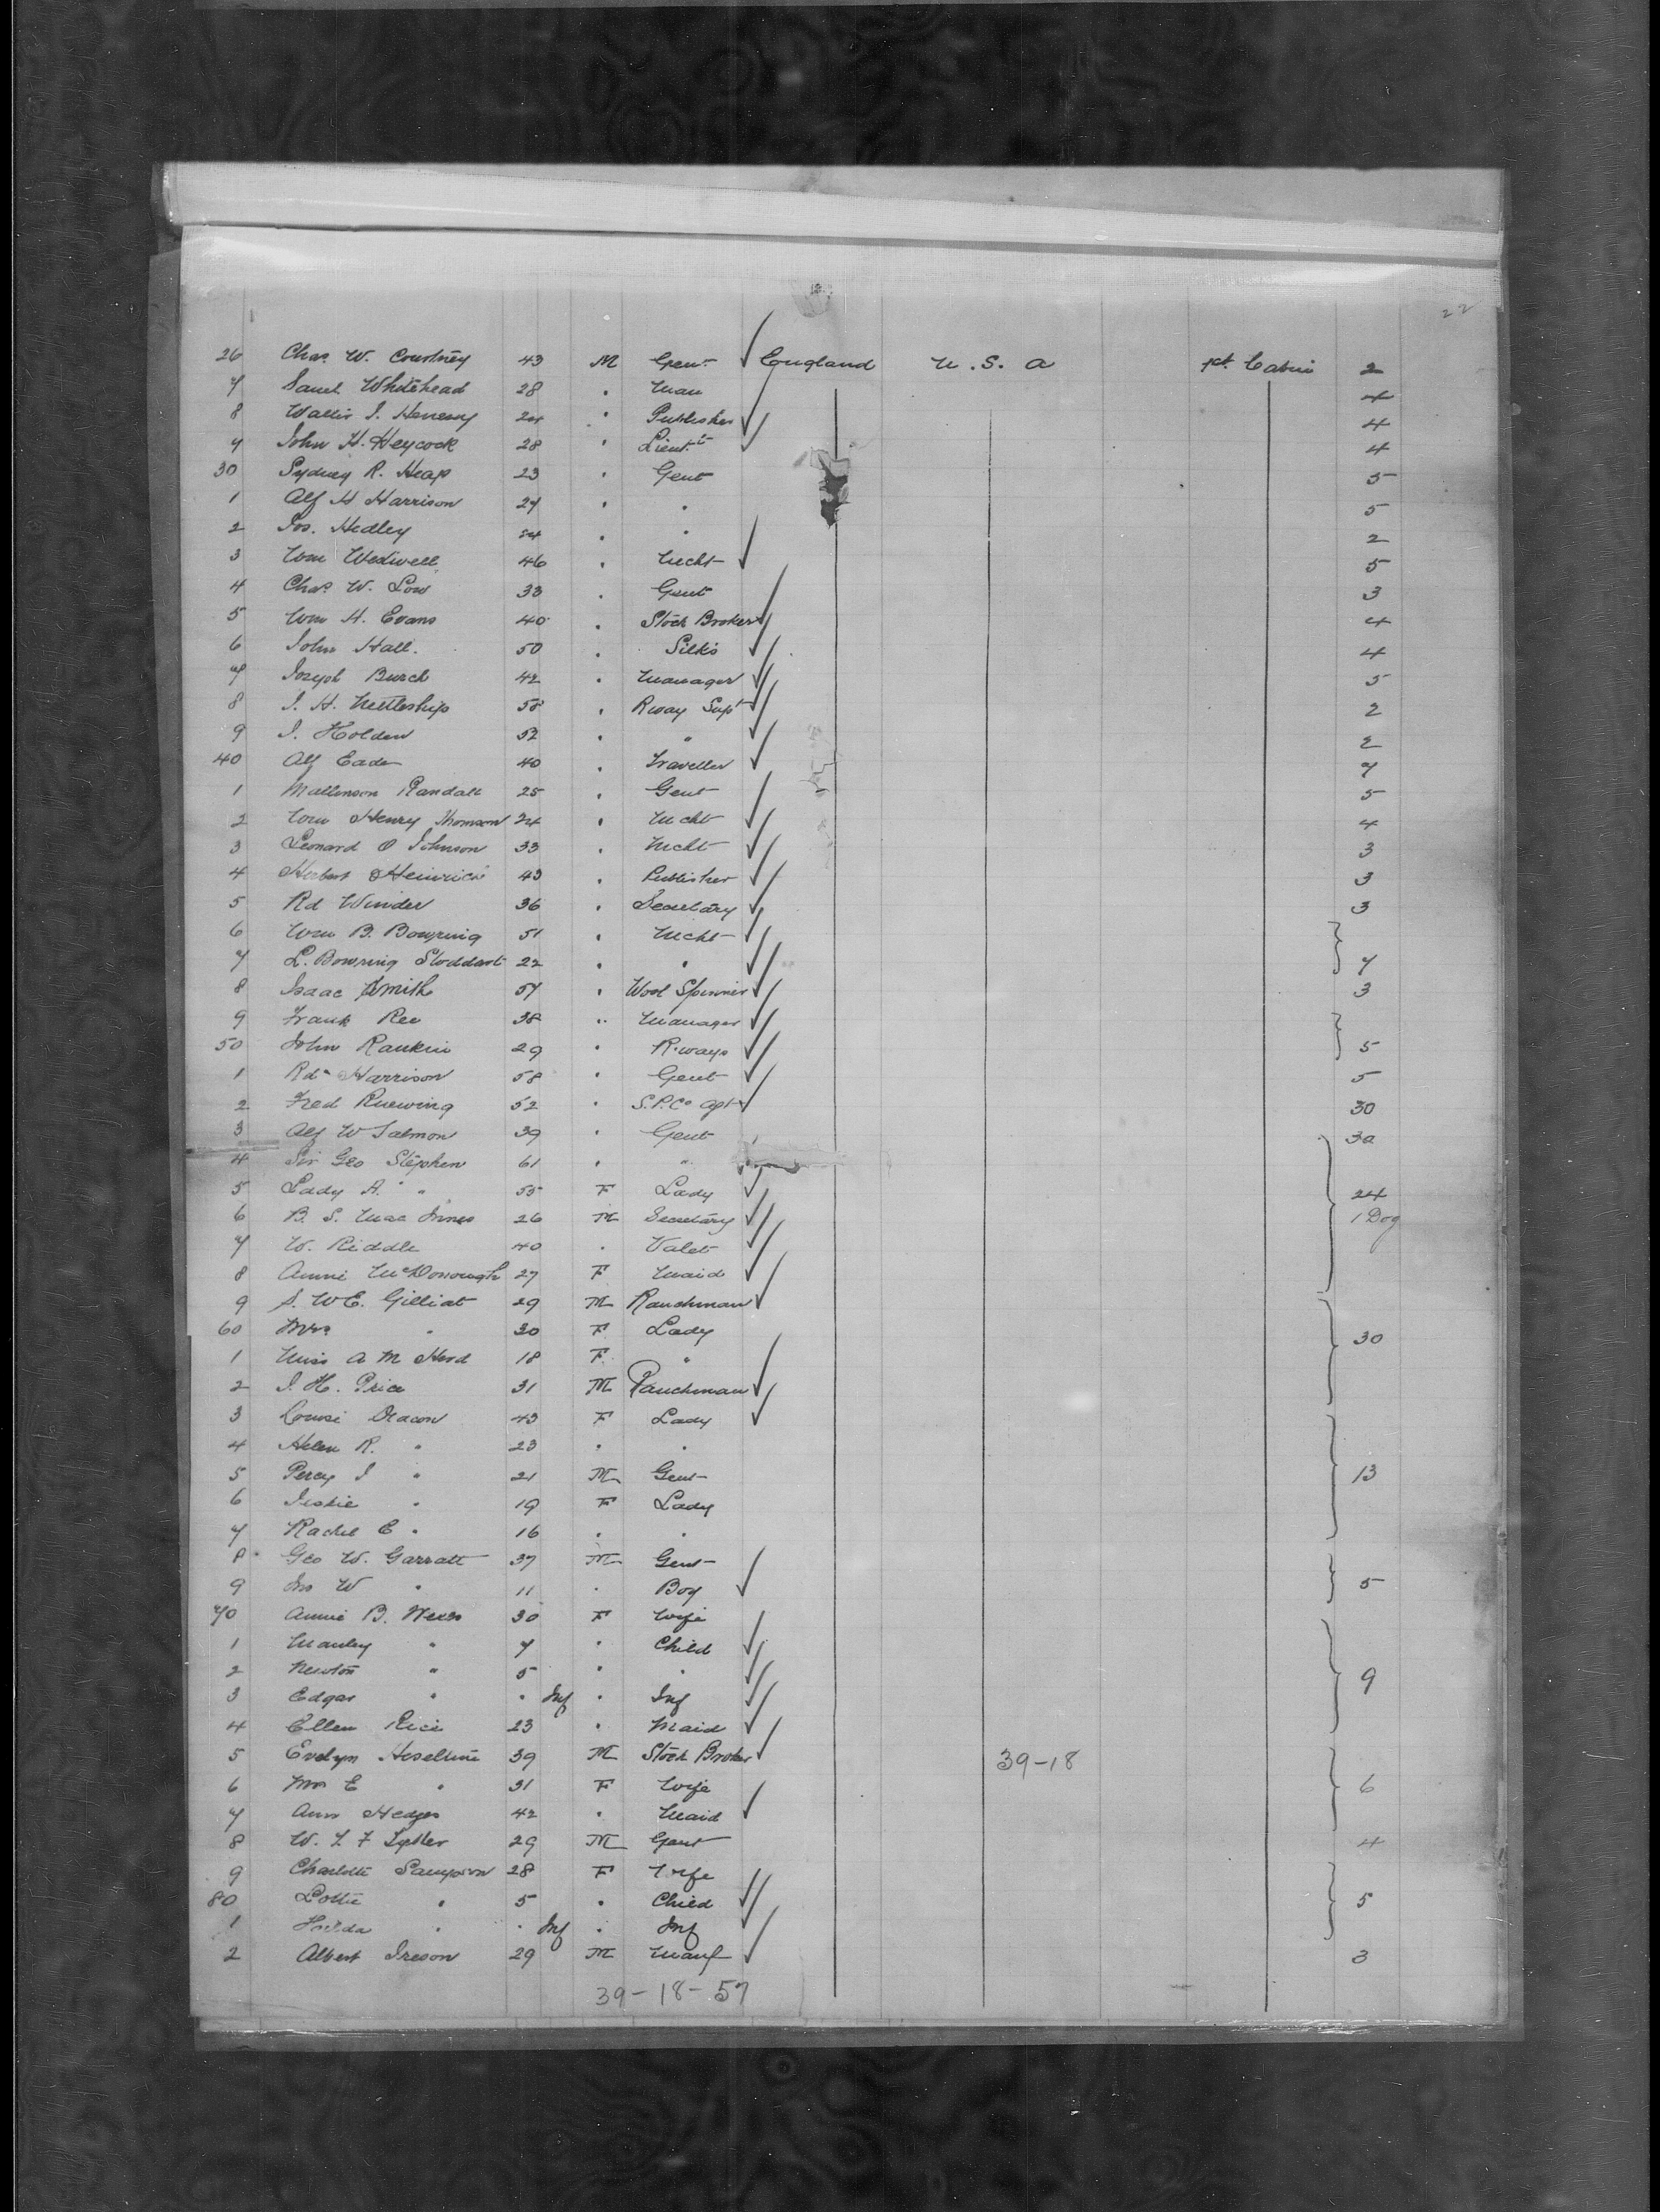 22
26 Chas. W. Courtney 43 M Gent England U.S.A 1st Cabin 2
7 Saml Whitehead 28 " Man 4
8 Walter J. Henessy 24 " Publisher 4
9 John H. Heycock 28 " Lieut. 4
30 Sydney R. Heap 23 " Gent 5
1 Alf H Harrison 27 " " 5
2 Jos. Hedley " " 2
3 Wm 46 " Mcht 5
4 Chas. W. Low 33 " Gent 3
5 Wm H. Evans 40 " Stock Broker 4
6 John Hall. 50 " Silks 4
7 Joseph Burch 42 " Manager 5
8 J. H. Nettleship 58 " Rway Supt 2
9 J. Holden 52 " " 2
40 Alf Eade 40 " Traveller 7
1 Mallinson Randall 25 " Gent 5
2 Wm Henry Thomson 24 " Mcht 4
3 Leonard O Johnson 33 " Mcht 3
4 Herbert 43 " Publisher 3
5 Rd Winder 36 " Secretary 3
6 Wm B. Bowring 51 " Mcht
7 L. Bowring Stoddart 22 " " 7
8 Isaac Smith 57 " Wool Spinner 3
9 Frank Ree 38 " Manager
50 John Rankin 29 " R.ways 5
1 Rd. Harrison 58 " Gent 5
2 Fred 52 " S.P.Co Agt 30
3 Alf W Salmon 39 " Gent 3a
4 Sir Geo Stephen 61 " "
5 Lady A. " 55 F Lady 24
6 B. S. MacInnes 26 M Secretary 1 Dog
7 W. Riddle 40 " Valet
8 Annie McDonough 27 F Maid
9 S. W E. Gilliat 29 M Ranchman
60 Mrs " 30 F Lady 30
1 Miss A M Herd 18 F "
2 J. H. Price 31 M Ranchman
3 Louise Deacon 43 F Lady
4 Helen R. " 23 " "
5 Percy J " 21 M Gent 13
6 " 19 F Lady
7 Rachel E " 16 " "
8 Geo W. Garratt 37 M Gent
9 Jno W " 11 " Boy 5
70 Annie B. 30 F Wife
1 Manley " 7 " Child
2 Newton " 5 " " 9
3 Edgar " " Inf " Inf
4 Ellen Rice 23 " Maid
5 Evelyn Heseltine 39 M Stock Broker 39-18
6 Mrs E " 31 F Wife 6
7 Ann Hedges 42 " Maid
8 W. 29 M Gent 4
9 Charlotte Sampson 28 F Wife
80 Lottie " 5 " Child 5
1 Hilda " " Inf " Inf
2 Albert Ireson 29 M Manf 3
39-18-57